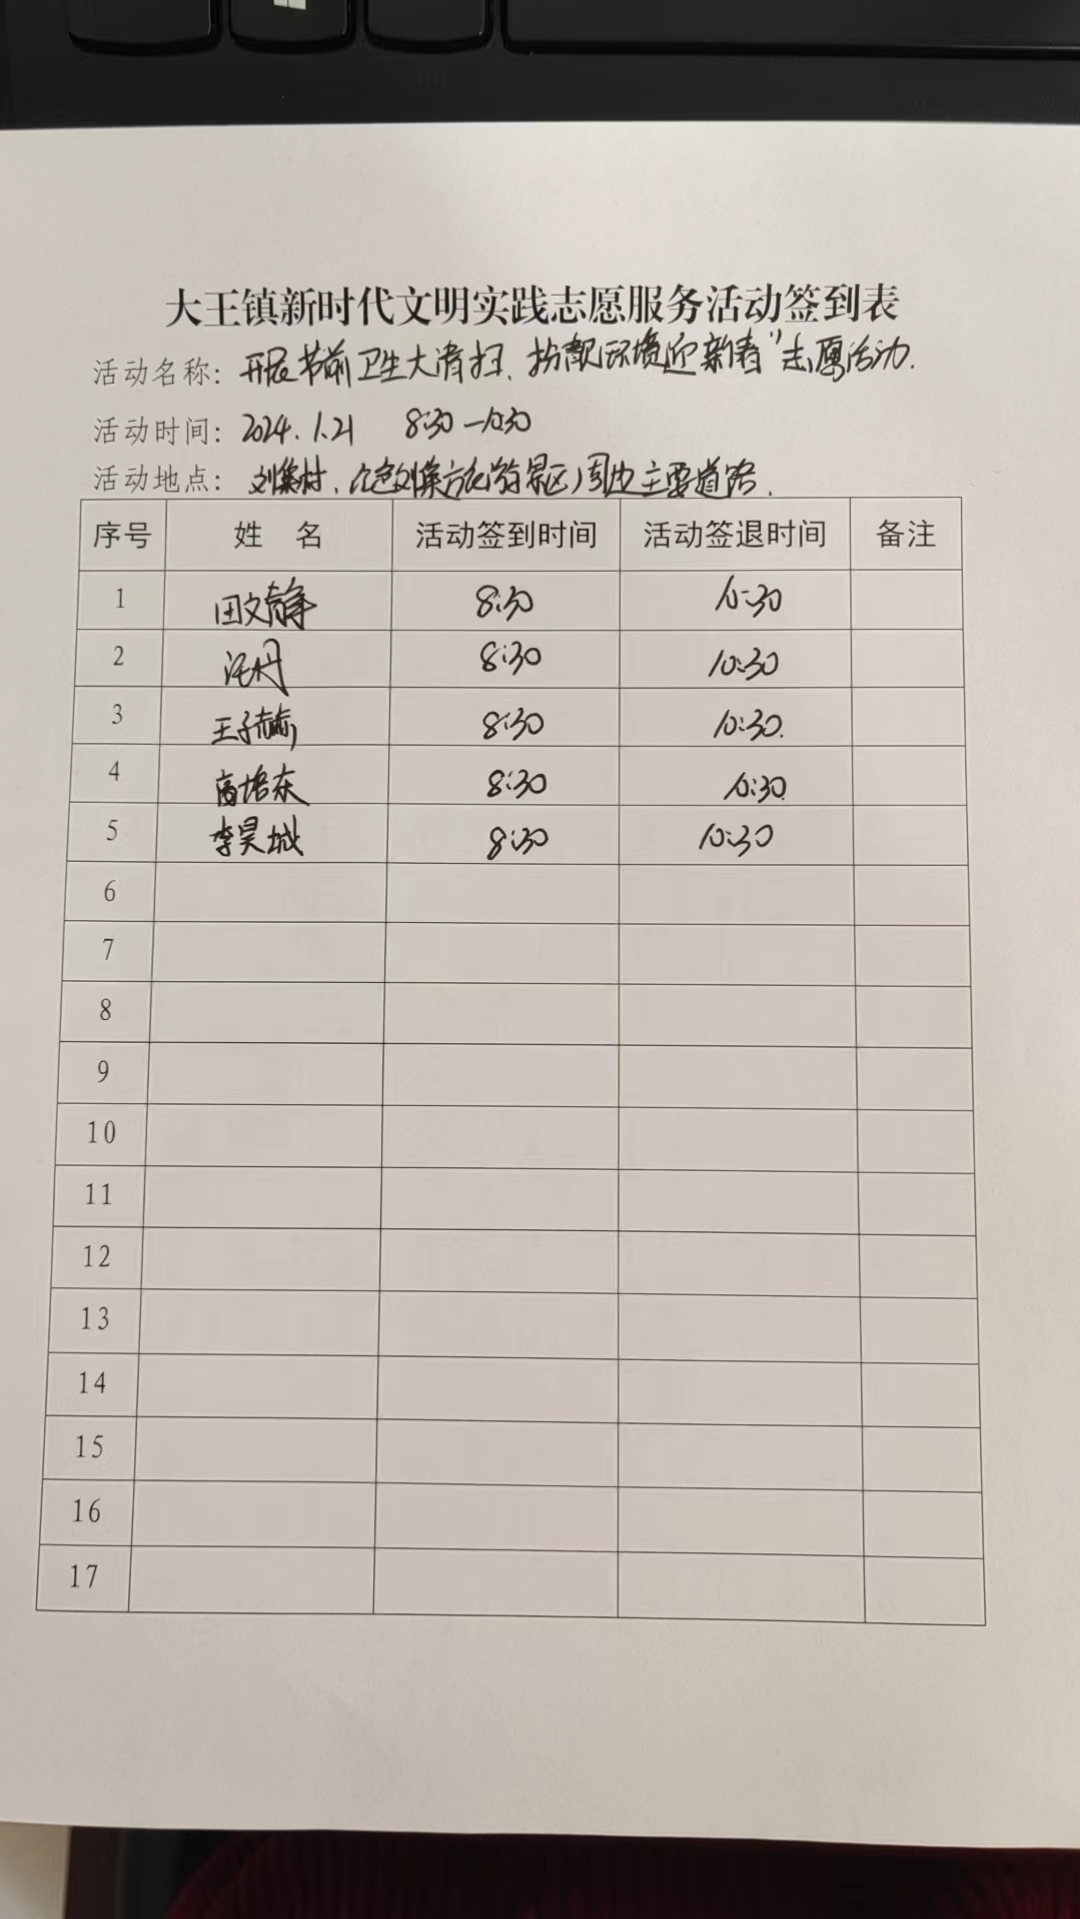 大王镇新时代文明实践志愿服务活动签到表
活动名称：开展节前卫生大清扫、扮靓环境迎新春”志愿活动.
活动时间：2024.1.21 8:30—10:30
活动地点：刘集村、红色刘集旅游景区周边主要道路.
序号 姓 名 活动签到时间 活动签退时间 备注
1 田文静 8:30 10:30
2 8:30 10:30
3 王子 8:30 10:30.
4 高培东 8:30 10:30
5 李昊城 8:30 10:30
6
7
8
9
10
11
12
13
14
15
16
17